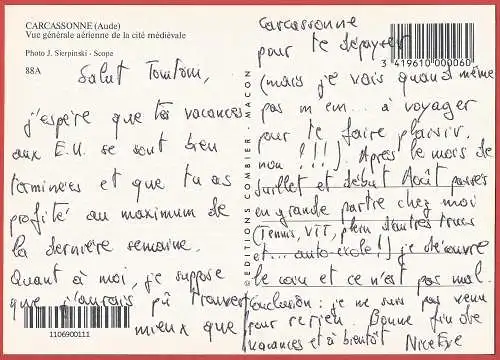 CARCASSONNE (Aude)
Vue générale aérienne de la cité médiévale
Photo J. Sierpinski - Scope
88A
Salut Tomtom,
j'espère que tes vacances
aux E.U. se sont bien
terminées et que tu as
profité au maximum de
la dernière semaine.
Quant à moi, je suppose
que j'aurais pû trouver
mieux que
1106900111
© EDITIONS COMBIER - MACON
3 419610 000060
Carcassonne
pour te dépayser
(mais je vais quand même
pas m'em... à voyager
pour te faire plaisir,
non !!!). Après le mois de
Juillet et début Août passés
en grande partie chez moi
(Tennis, VTT, plein d'autres trucs
et... auto-école!) je découvre
le coin et ce n'est pas mal.
Conclusion: je ne suis pas venu
pour rien. Bonne fin de
vacances et à bientôt